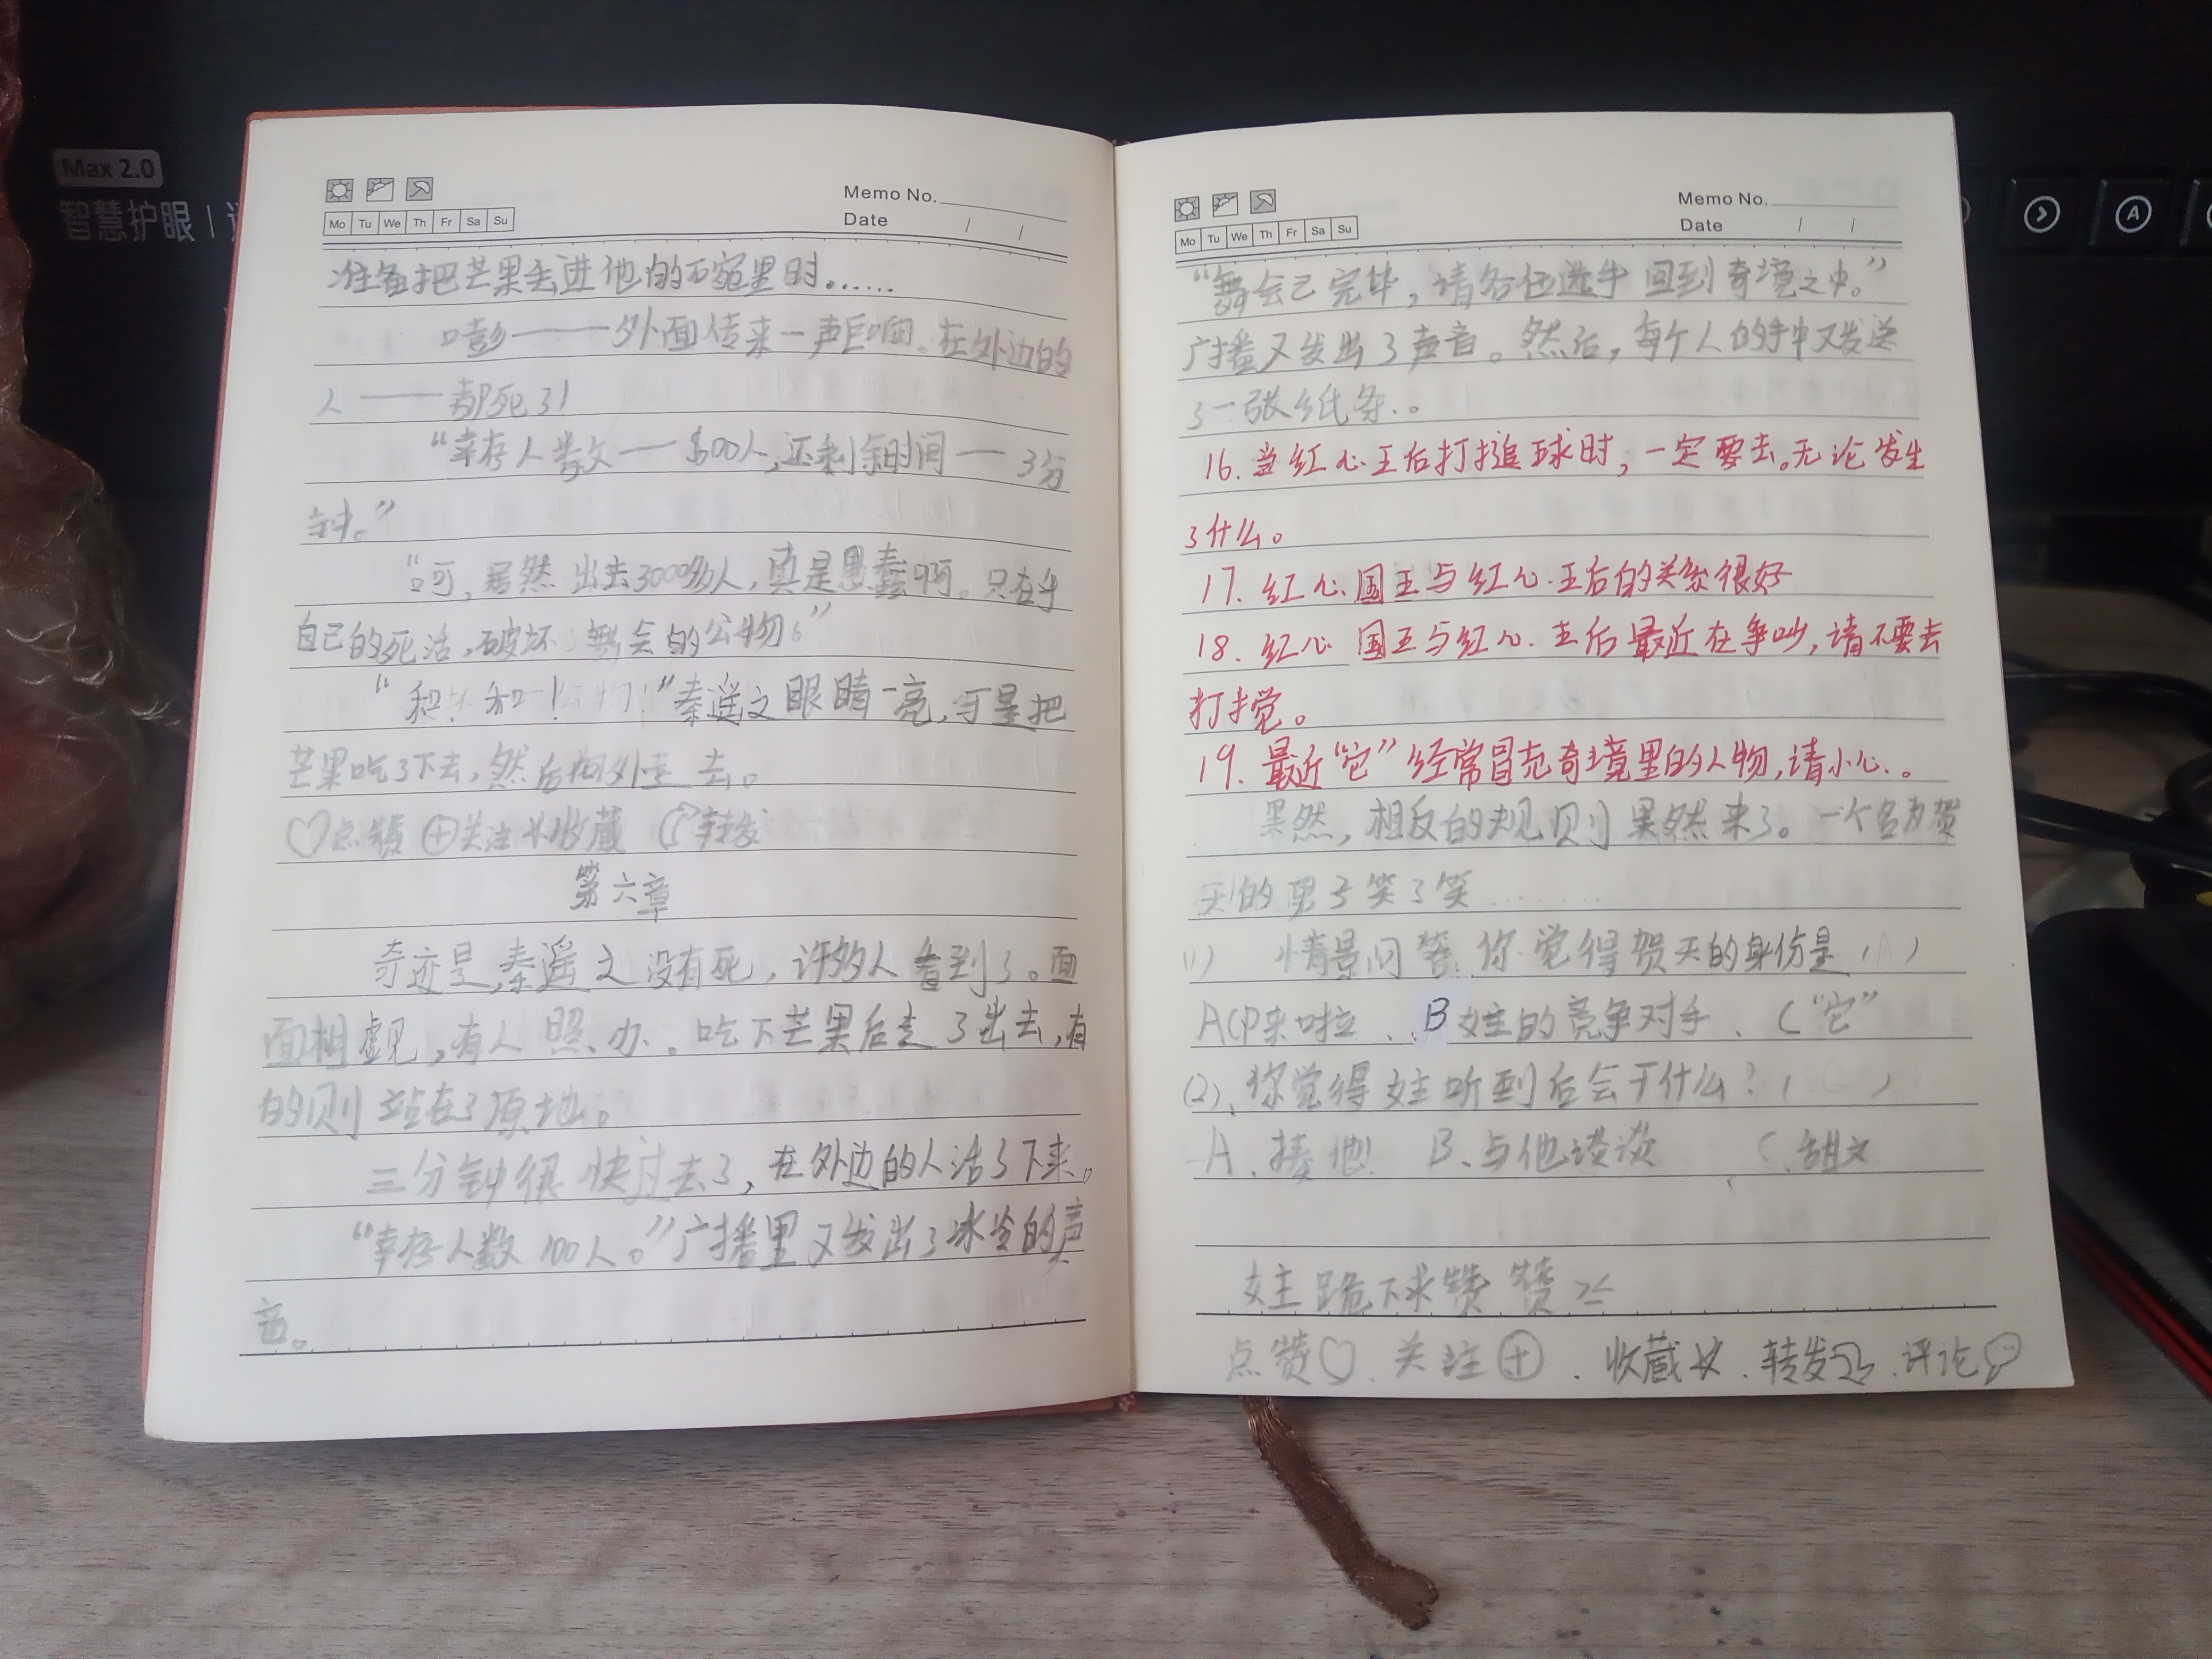 Max 2.0
智慧护眼
Memo No.
Date / /
Mo Tu We Th Fr Sa Su
准备把芒果丢进他的碗里时……
嘭——外面传来一声巨响。在外边的
人——都死了!
“幸存人数—500人,还剩余时间—3分
钟。”
“呵,居然出去3000多人,真是愚蠢啊。只在乎
自己的死活,破坏舞会的公物。”
秦遥之眼睛一亮,于是把
芒果吃了下去,然后向外走去。
点赞 关注 收藏 转发
第六章
奇迹是,秦遥之没有死,许多人看到了。面
面相觑,有人照办。吃下芒果后走了出去,有
的则站在了原地。
三分钟很快过去了,在外边的人活了下来。
“幸存人数100人。”广播里又发出了冰冷的声
音。
Memo No.
Date / /
Mo Tu We Th Fr Sa Su
“舞会已完毕,请各位选手回到奇境之中。”
广播又发出了声音。然后,每个人的手中又发送
了一张纸条。
16.当红心王后打搥球时,一定要去。无论发生
了什么。
17.红心国王与红心王后的关系很好
18.红心国王与红心王后最近在争吵,请不要去
打扰。
19.最近“它”经常冒充奇境里的人物,请小心。
果然,相反的规则果然来了。一个名为贺
天的男子笑了笑……
(1) 情景问答.你觉得贺天的身份是( )
A CP来啦、B女主的竞争对手、C“它”
(2)、你觉得女主听到后会干什么?( )
A、揍他! B、与他谈谈 C、甜文
女主跪下求赞赞
点赞、关注、收藏、转发、评论